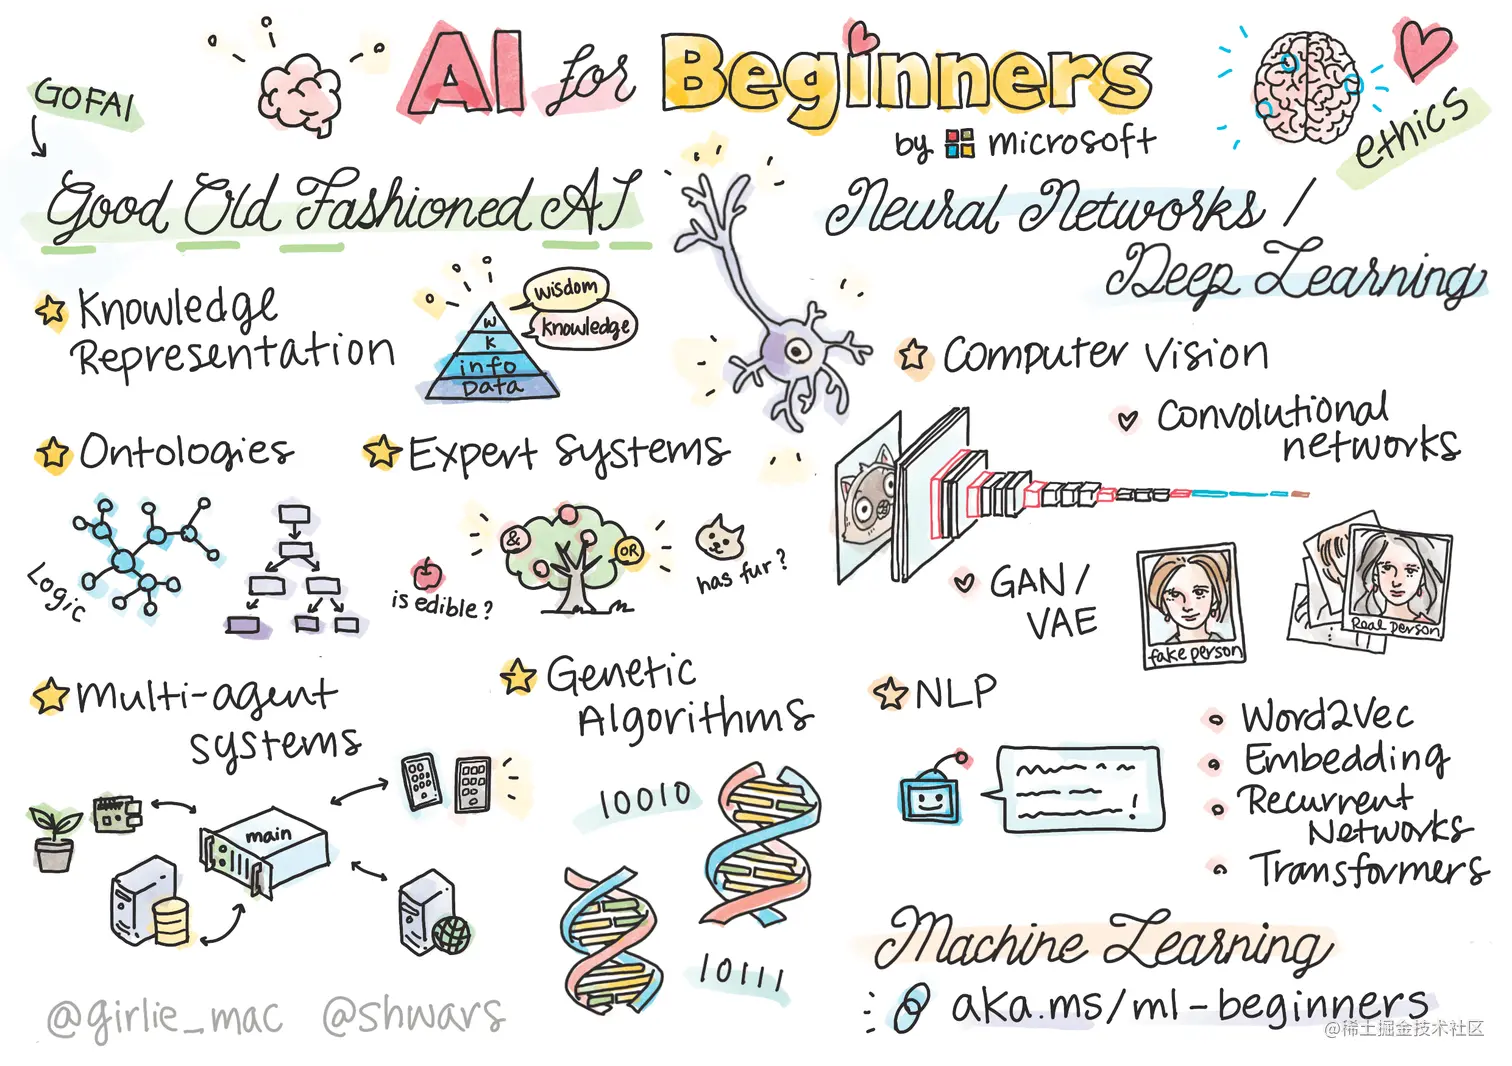 AI for Beginners
by microsoft
GOFAI
Good Old Fashioned AI
Knowledge
Representation
wisdom
knowledge
w
k
info
Data
Ontologies
Logic
Expert Systems
&
OR
is edible?
has fur?
Multi-agent
systems
main
Genetic
Algorithms
10010
10111
@girlie_mac @shwars
ethics
Neural Networks /
Deep Learning
Computer Vision
Convolutional
networks
GAN /
VAE
fake person
Real person
NLP
Word2Vec
Embedding
Recurrent
Networks
Transformers
!
Machine Learning
aka.ms/ml-beginners
@稀土掘金技术社区